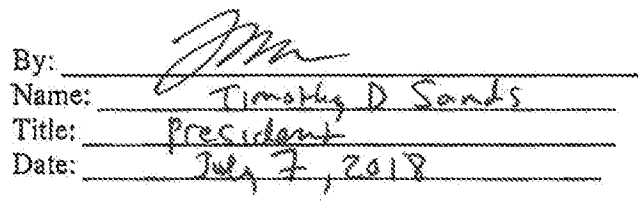 By:
Name: Timothy D Sands
Title: President
Date: July 7, 2018